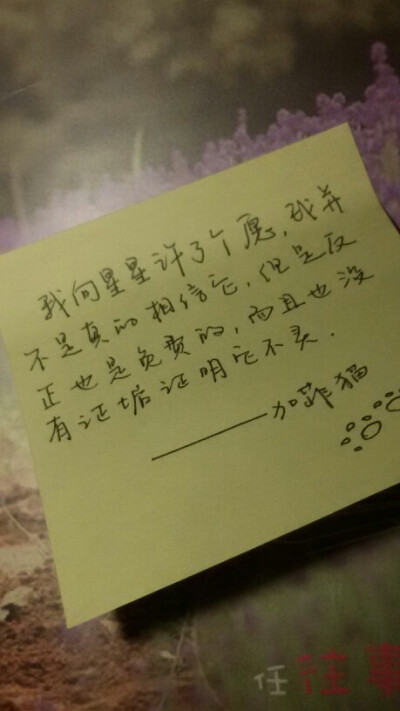 我向星星许了个愿，我并
不是真的相信它，但是反
正也是免费的，而且也没
有证据证明它不灵．
——加菲猫
任往事